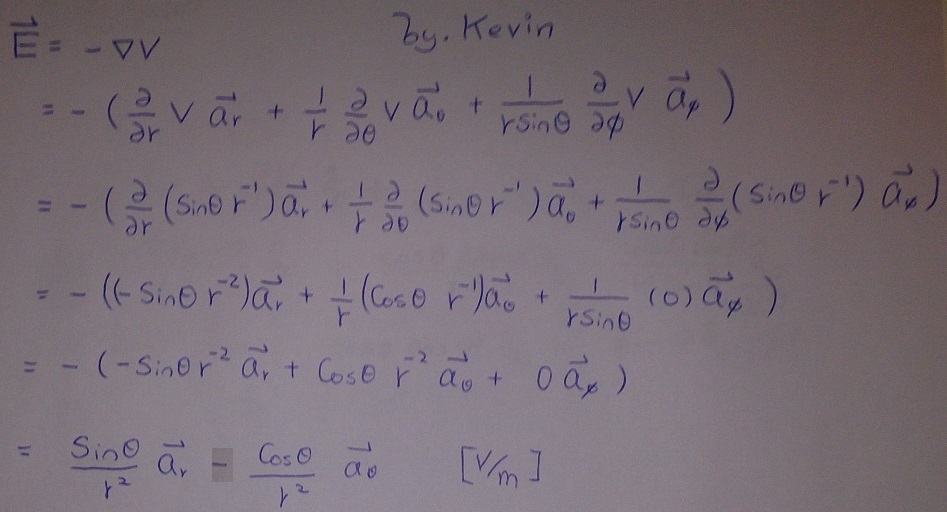 by. Kevin
E⃗ = - ∇V
= - ( ∂/∂r V a⃗r + 1/r ∂/∂θ V a⃗θ + 1/(r sinθ) ∂/∂φ V a⃗φ )
= - ( ∂/∂r (sinθ r⁻¹) a⃗r + 1/r ∂/∂θ (sinθ r⁻¹) a⃗θ + 1/(r sinθ) ∂/∂φ (sinθ r⁻¹) a⃗φ )
= - ((- sinθ r⁻²) a⃗r + 1/r (cosθ r⁻¹) a⃗θ + 1/(r sinθ) (0) a⃗φ )
= - ( - sinθ r⁻² a⃗r + cosθ r⁻² a⃗θ + 0 a⃗φ )
= sinθ/r² a⃗r - cosθ/r² a⃗θ [V/m]